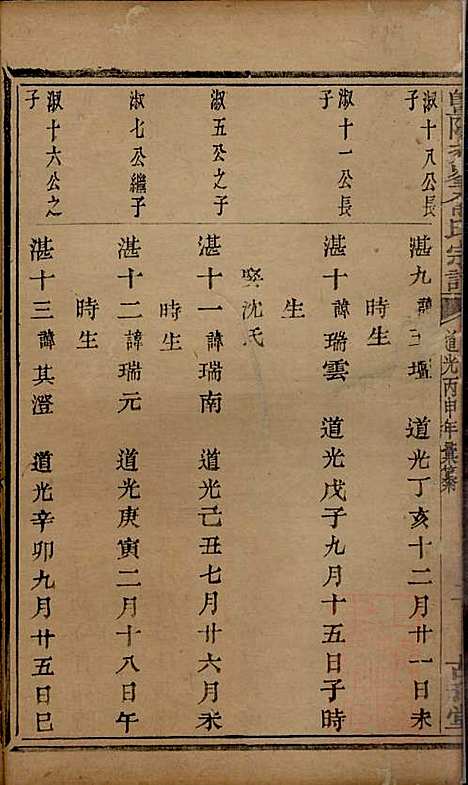 淑十八公長子
湛九諱玉堰 道光丁亥十二月廿一日未
時生
淑十一公長子
湛十諱瑞雲 道光戊子九月十五日子時
生
娶沈氏
淑五公之子
湛十一諱瑞南 道光己丑七月廿六月未
時生
淑七公繼子
湛十二諱瑞元 道光庚寅二月十八日午
時生
淑十六公之子
湛十三諱其澄 道光辛卯九月廿五日巳
氏宗譜
道光丙申年彙纂